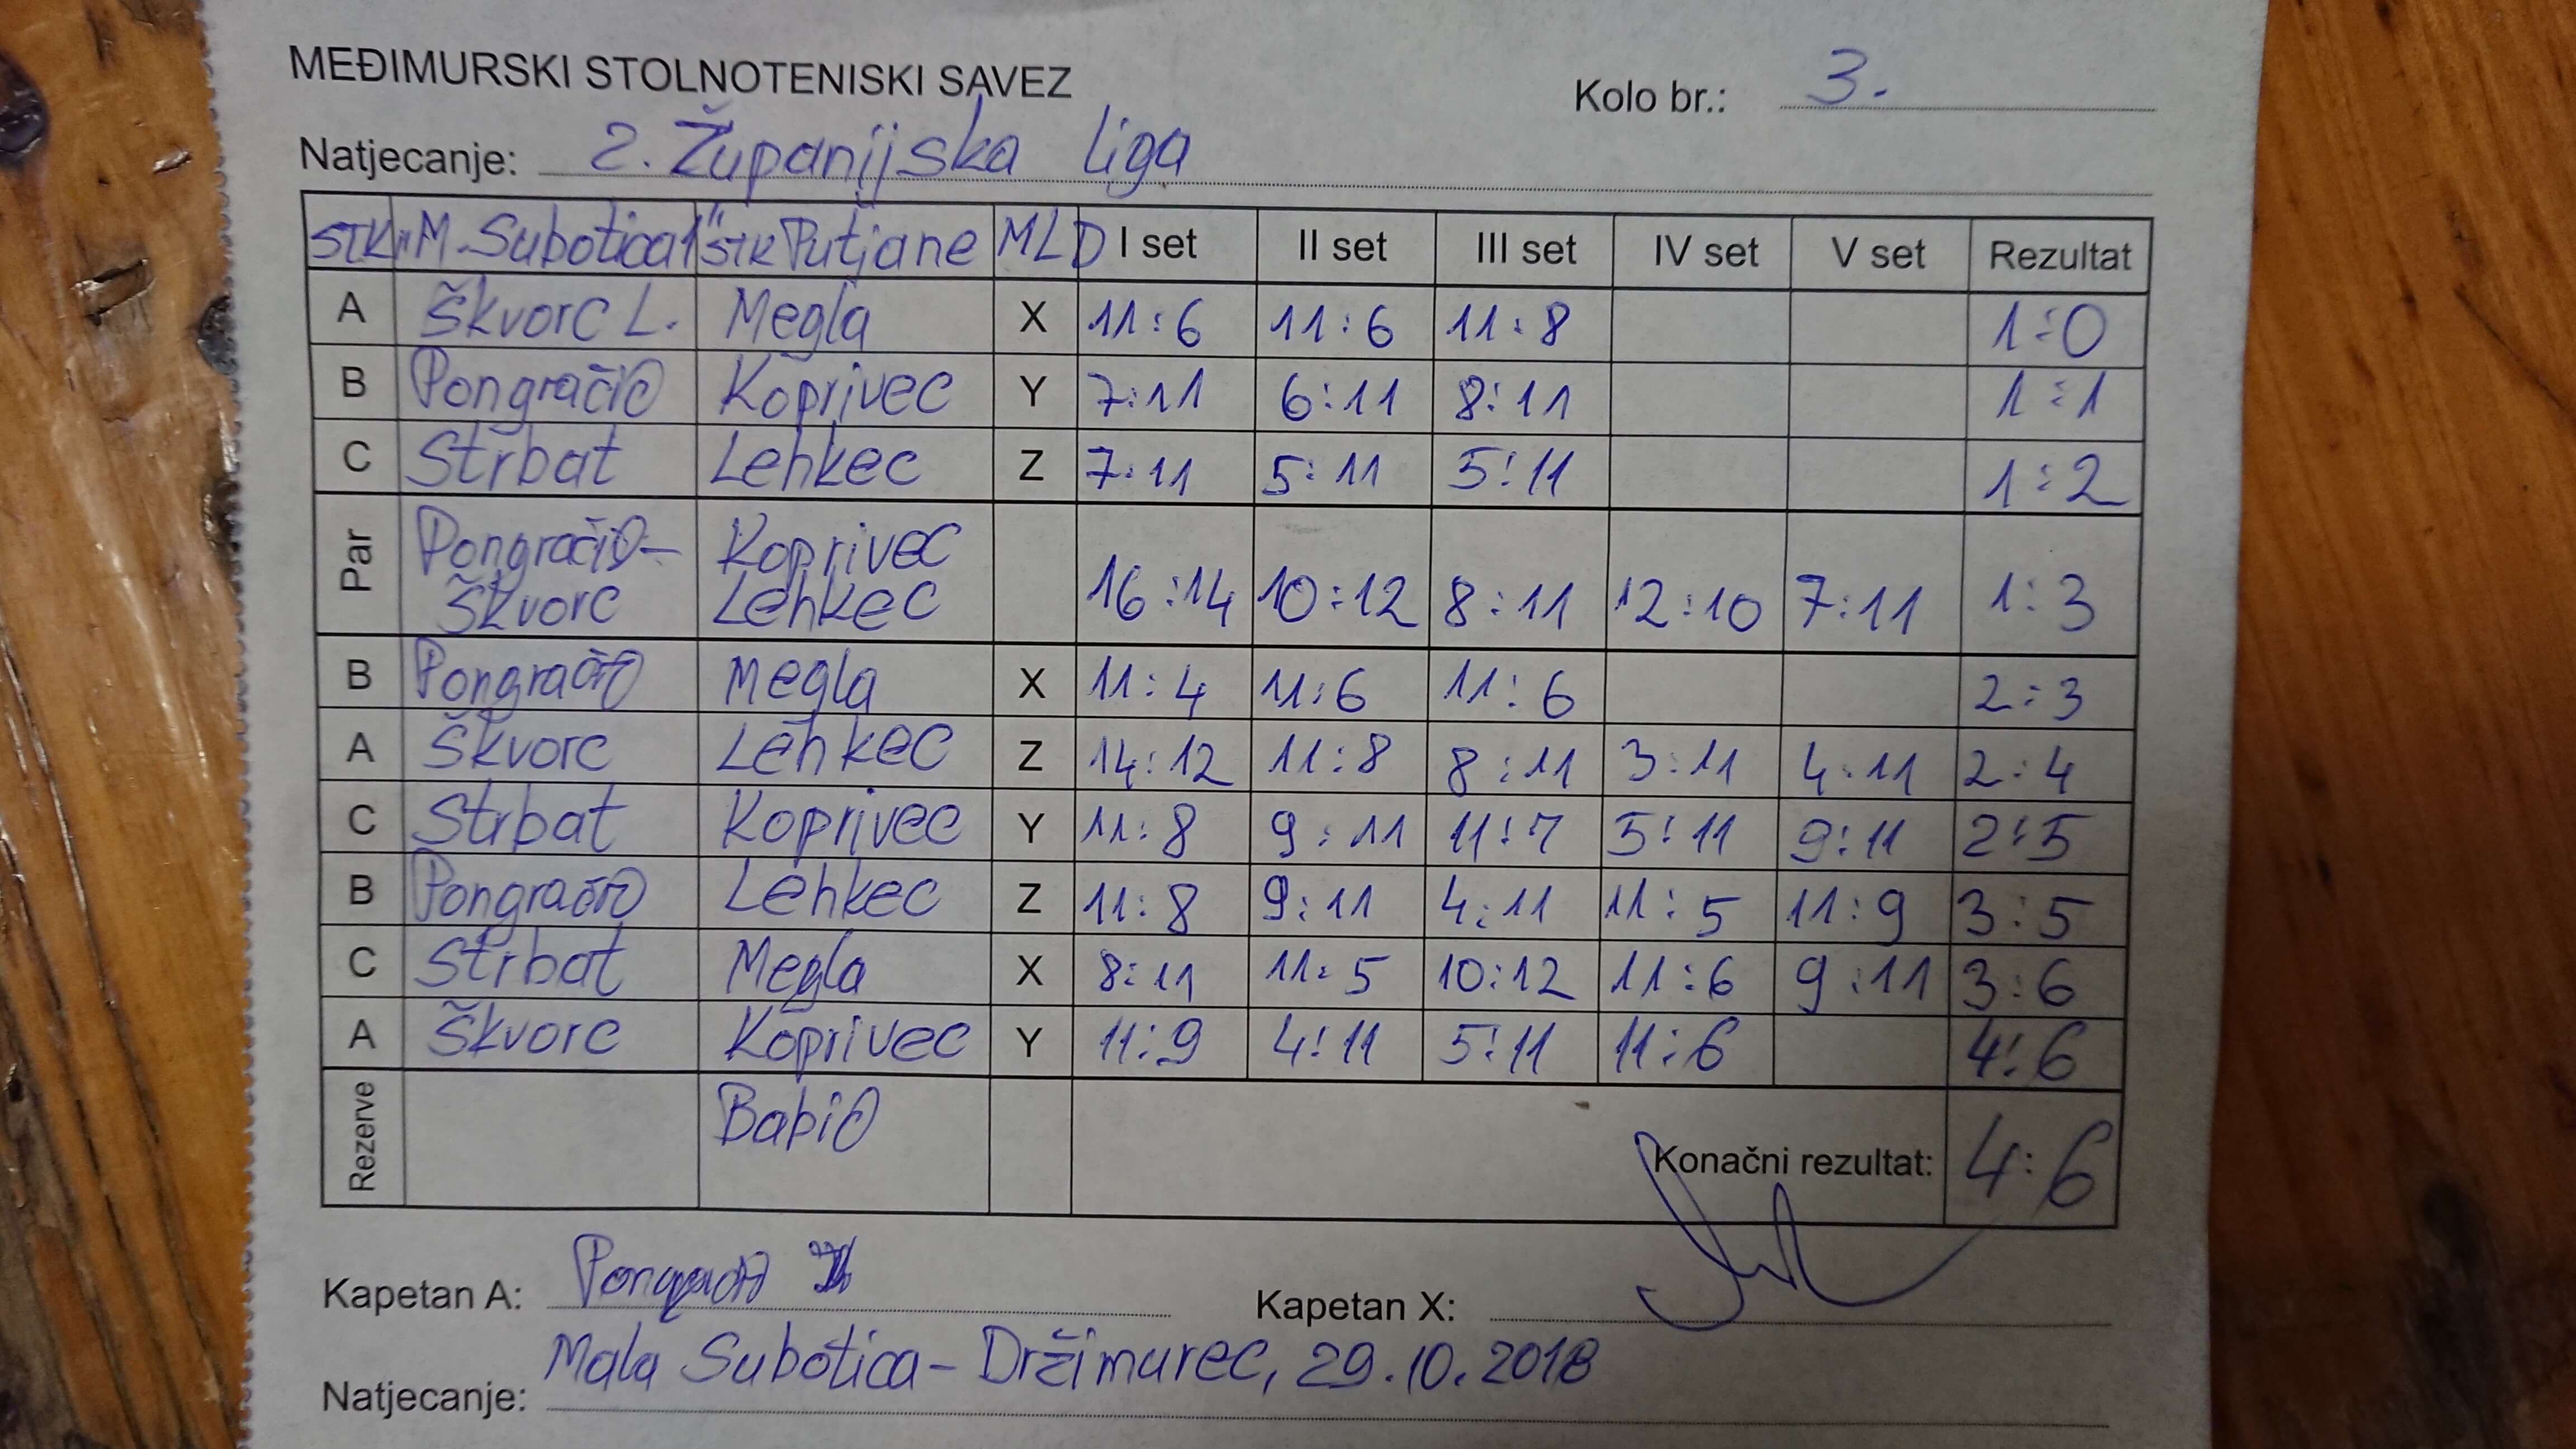 MEĐIMURSKI STOLNOTENISKI SAVEZ
Kolo br.: 3.
Natjecanje: 2. Županijska liga
STK "M. Subotica 1" STK Putjane MLD I set II set III set IV set V set Rezultat
A Škvorc L. Megla X 11:6 11:6 11:8 1:0
B Pongračić Koprivec Y 7:11 6:11 8:11 1:1
C Strbat Lehkec Z 7:11 5:11 5:11 1:2
Par Pongračić- Škvorc Koprivec Lehkec 16:14 10:12 8:11 12:10 7:11 1:3
B Pongračić Megla X 11:4 11:6 11:6 2:3
A Škvorc Lehkec Z 14:12 11:8 8:11 3:11 4:11 2:4
C Strbat Koprivec Y 11:8 9:11 11:7 5:11 9:11 2:5
B Pongračić Lehkec Z 11:8 9:11 4:11 11:5 11:9 3:5
C Strbat Megla X 8:11 11:5 10:12 11:6 9:11 3:6
A Škvorc Koprivec Y 11:9 4:11 5:11 11:6 4:6
Rezerve Babić
Konačni rezultat: 4:6
Kapetan A: Pongračić
Kapetan X:
Natjecanje: Mala Subotica - Držimurec, 29.10.2018